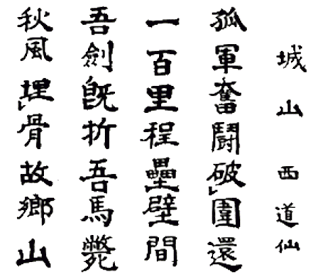 城山 西道仙
孤軍奮闘破レ圍還
一百里程壘壁間
吾劍既折吾馬斃
秋風埋レ骨故鄉山